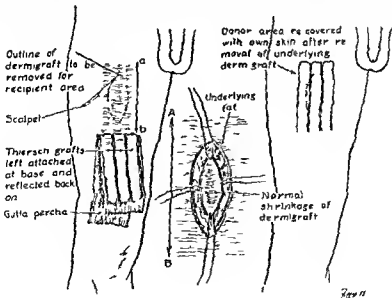 Outline of
dermigraft to be
removed for
recipient area
Scalpel
a
b
Thiersch grafts
left attached
at base and
reflected back
on
Gutta percha
A
B
Underlying
fat
Normal
shrinkage of
dermigraft
Donor area re covered
with own skin after re
moval of underlying
derm graft